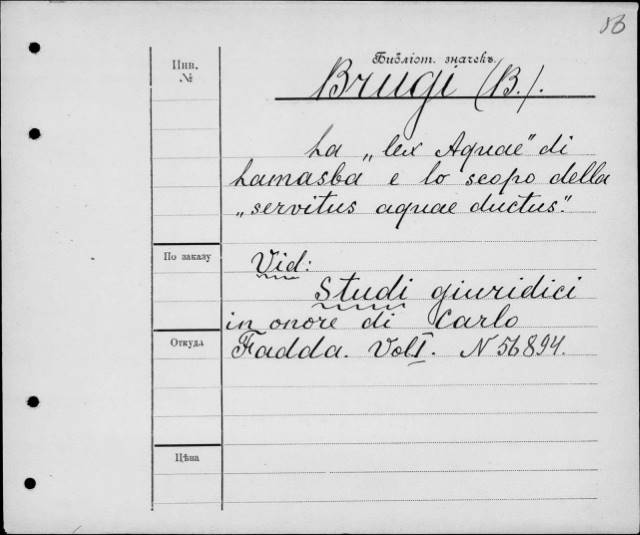 56
Инв.
№
Библіот. значекъ
Brugi (B.).
La „lex Aquae" di
Lamasba e lo scopo della
„servitus aquae ductus".
По заказу
Vid:
Studi giuridici
in onore di Carlo
Откуда
Fadda. Vol I. N 56894.
Цѣна